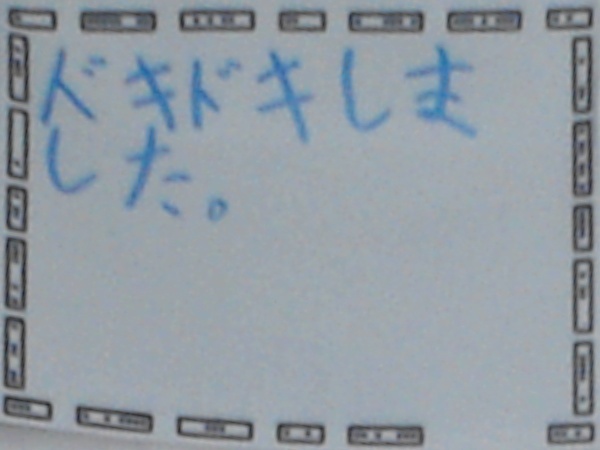 ドキドキしま
した。